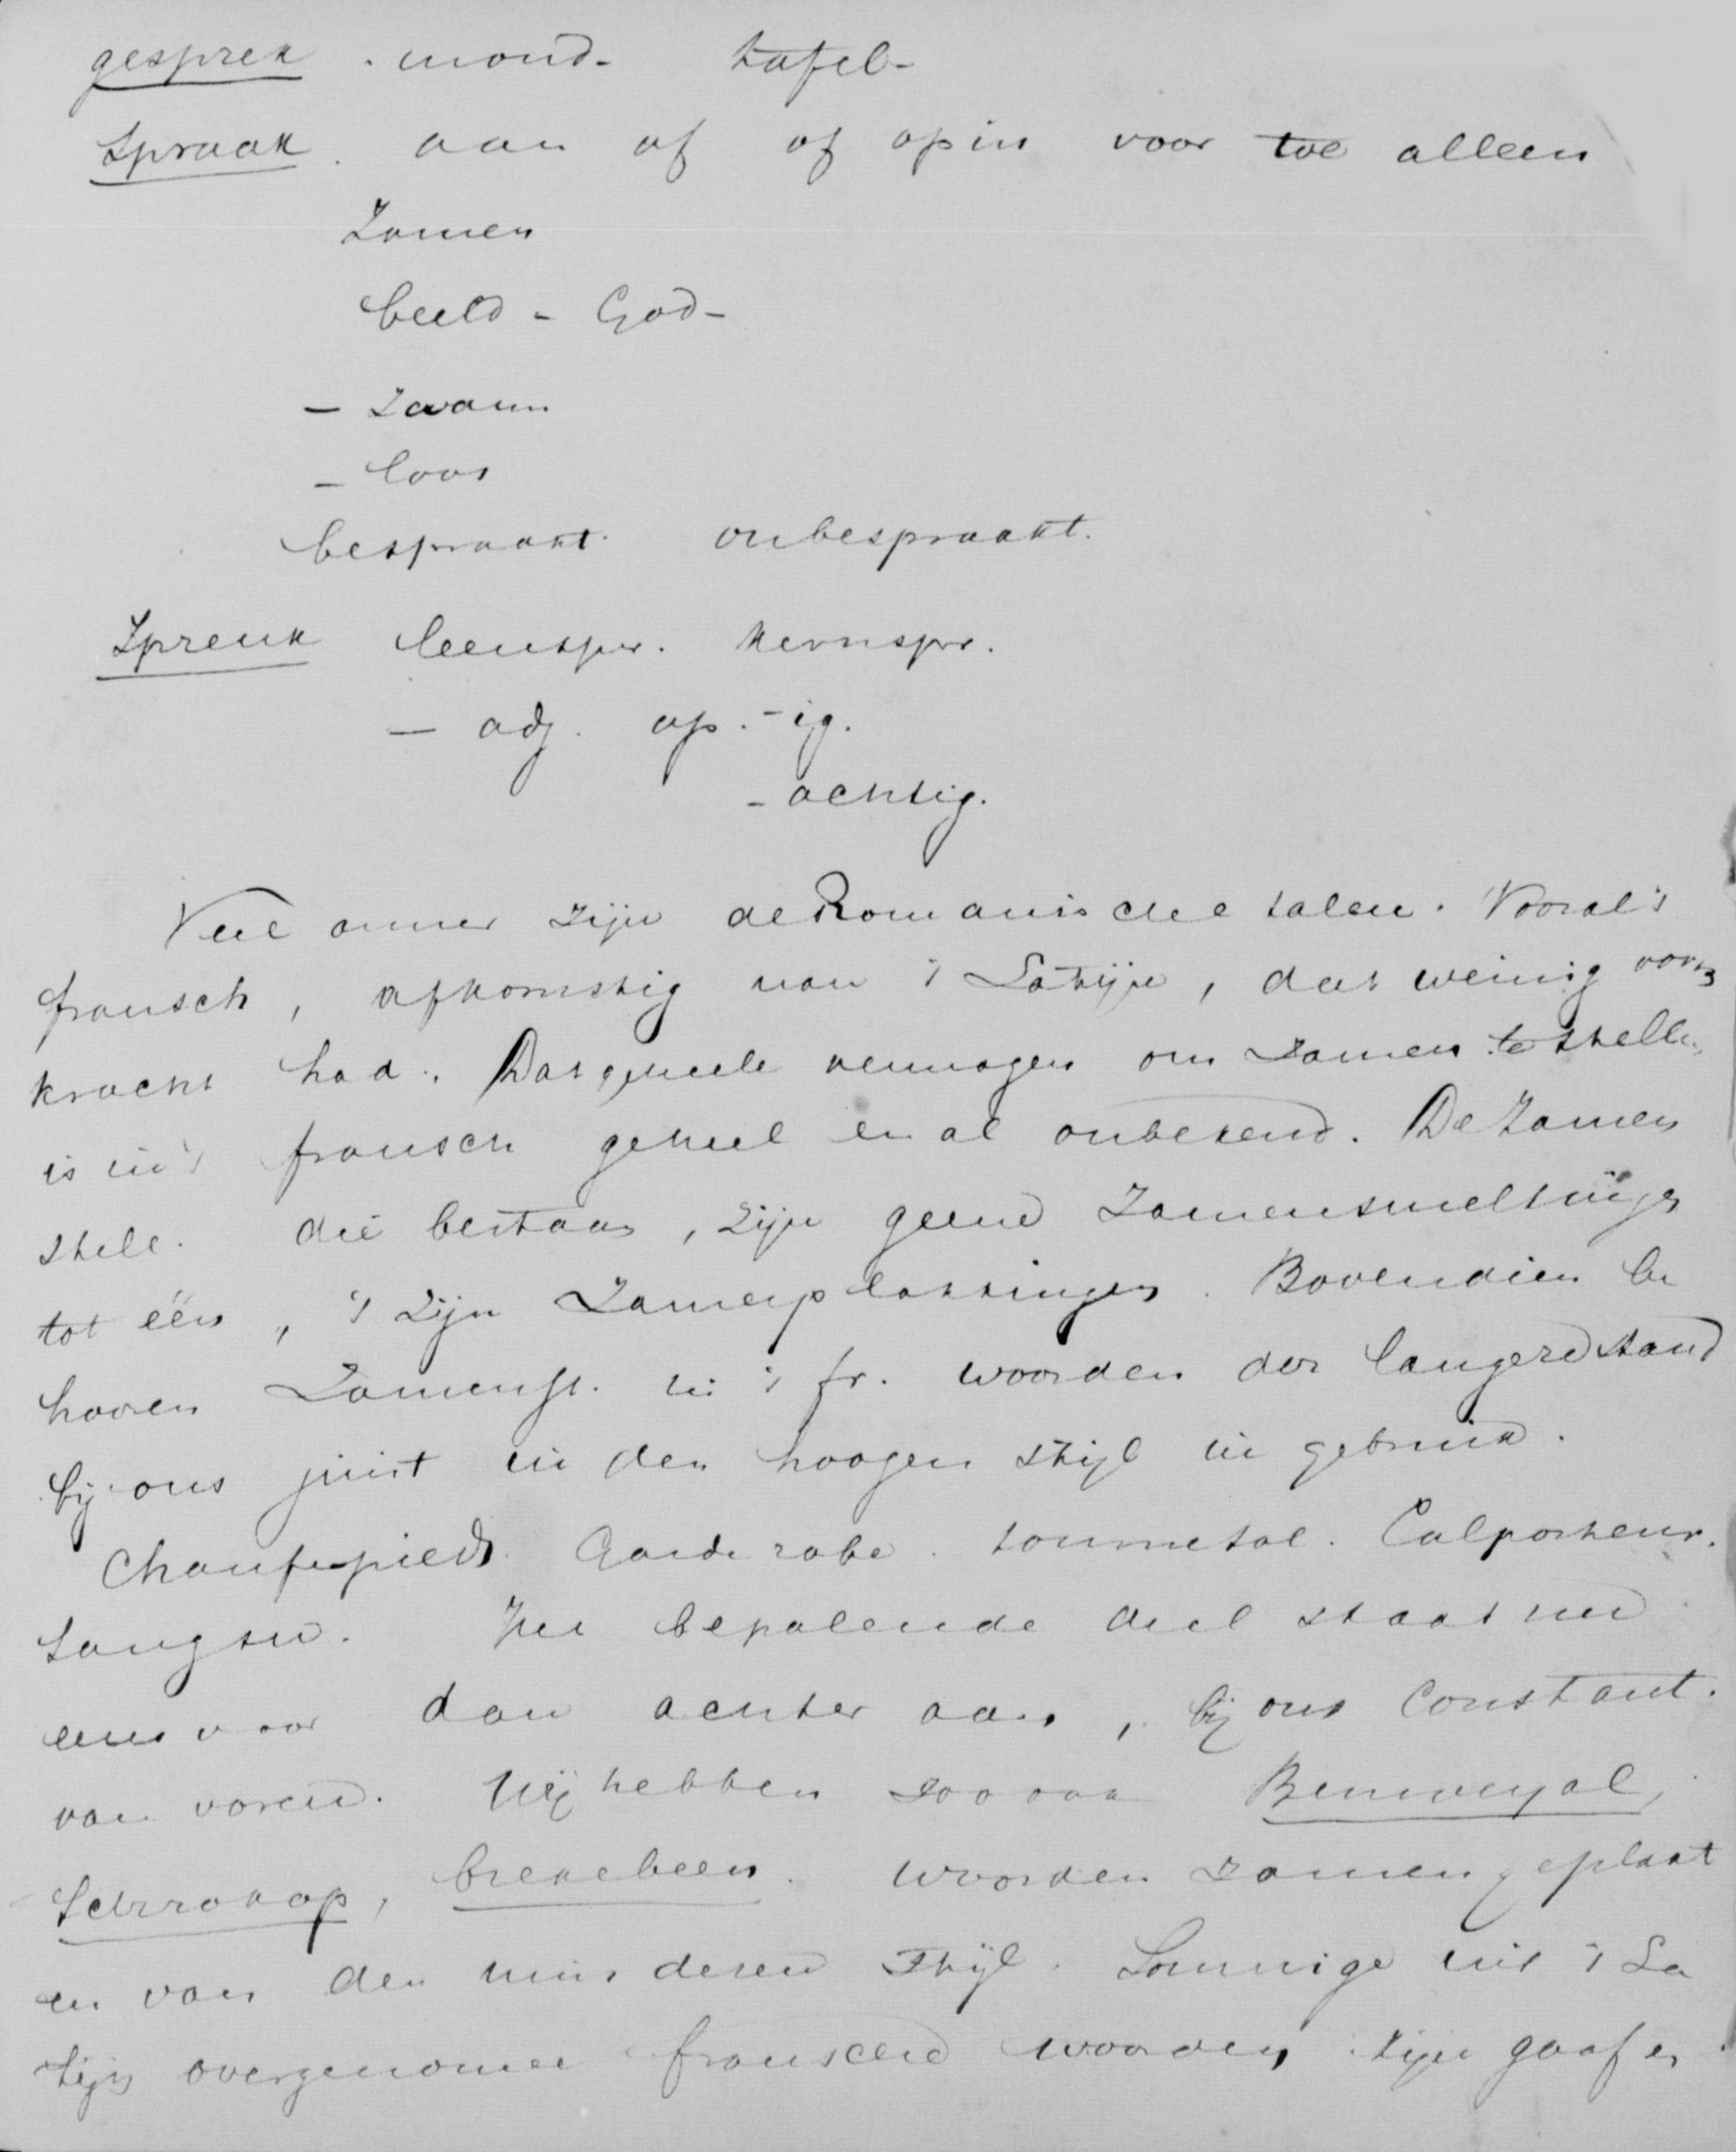 gesprek . mond- tafel-
Spraak . aan af of op in voor toe alleen
Zamen
beeld - God-
- zaam
- loos
bespraakt. onbespraakt.
Spreuk leenspr. kernspr.
- adj. op. -ig.
- achtig.
Veel armer zijn de Romanische talen. Vooral 't
fransch, afkomstig van 't Latijn, dat weinig
kracht had. Dat geheele vermogen om zamen te stellen
is in 't fransch geheel en al onbekend. De Zamen
stell. die bestaan, zijn geene Zamensmeltingen
tot één, 't zijn Zamenplakkingen. Bovendien be
hooren Zamenst. in 't fr. woorden der lageren stand
bij ons juist in den hoogen stijl in gebruik.
Chaufepieds. Garderobe. tournesol. Colporteur.
Sangsu. Het bepalende deel staat nu
eens voor dan achter aan, bij ons constant.
van voren. Wij hebben zoo ook Bemoeyal,
Schrokop, brekebeen. woorden zamengeplakt
en van den minderen stijl. Sommige uit 't La
tijn overgenomen fransche woorden zijn gaaf en